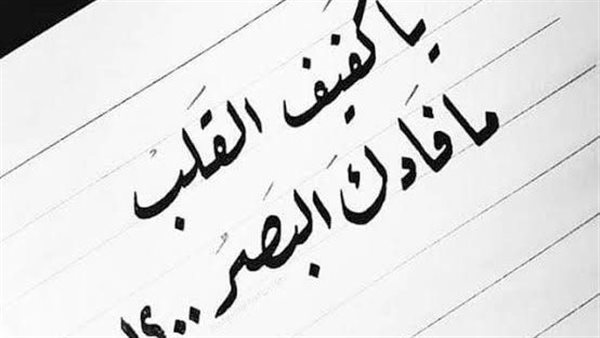 يا كفيف القلَب
ما فادك البَصَر ..